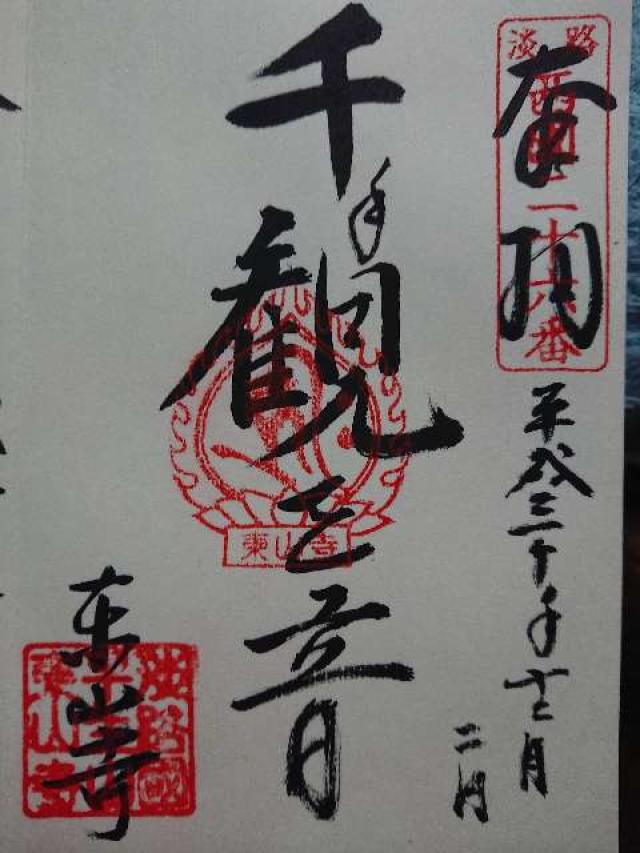 奉拝
淡路
西国二十六番
平成三十年十二月
二日
千手観世音
東山寺
東山寺
淡路國
東山寺